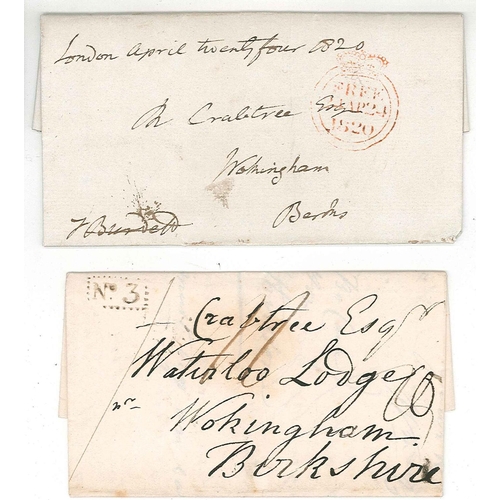 London April twentyfour 1820
FREE
AP 24
1820
Crabtree Esqr
Wokingham
Berks
F Burdett
No. 3
Crabtree Esqr
Waterloo Lodge
nr
Wokingham
Berkshire